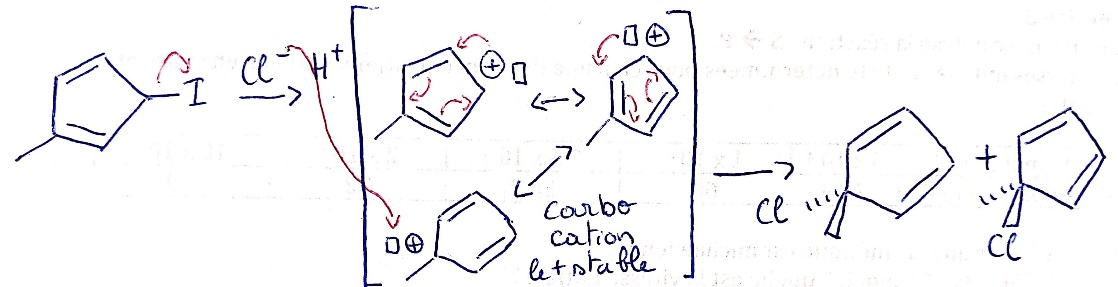 I
Cl⁻ H⁺
⊕
⊕
⊕
carbo
cation
le + stable
Cl
+
Cl